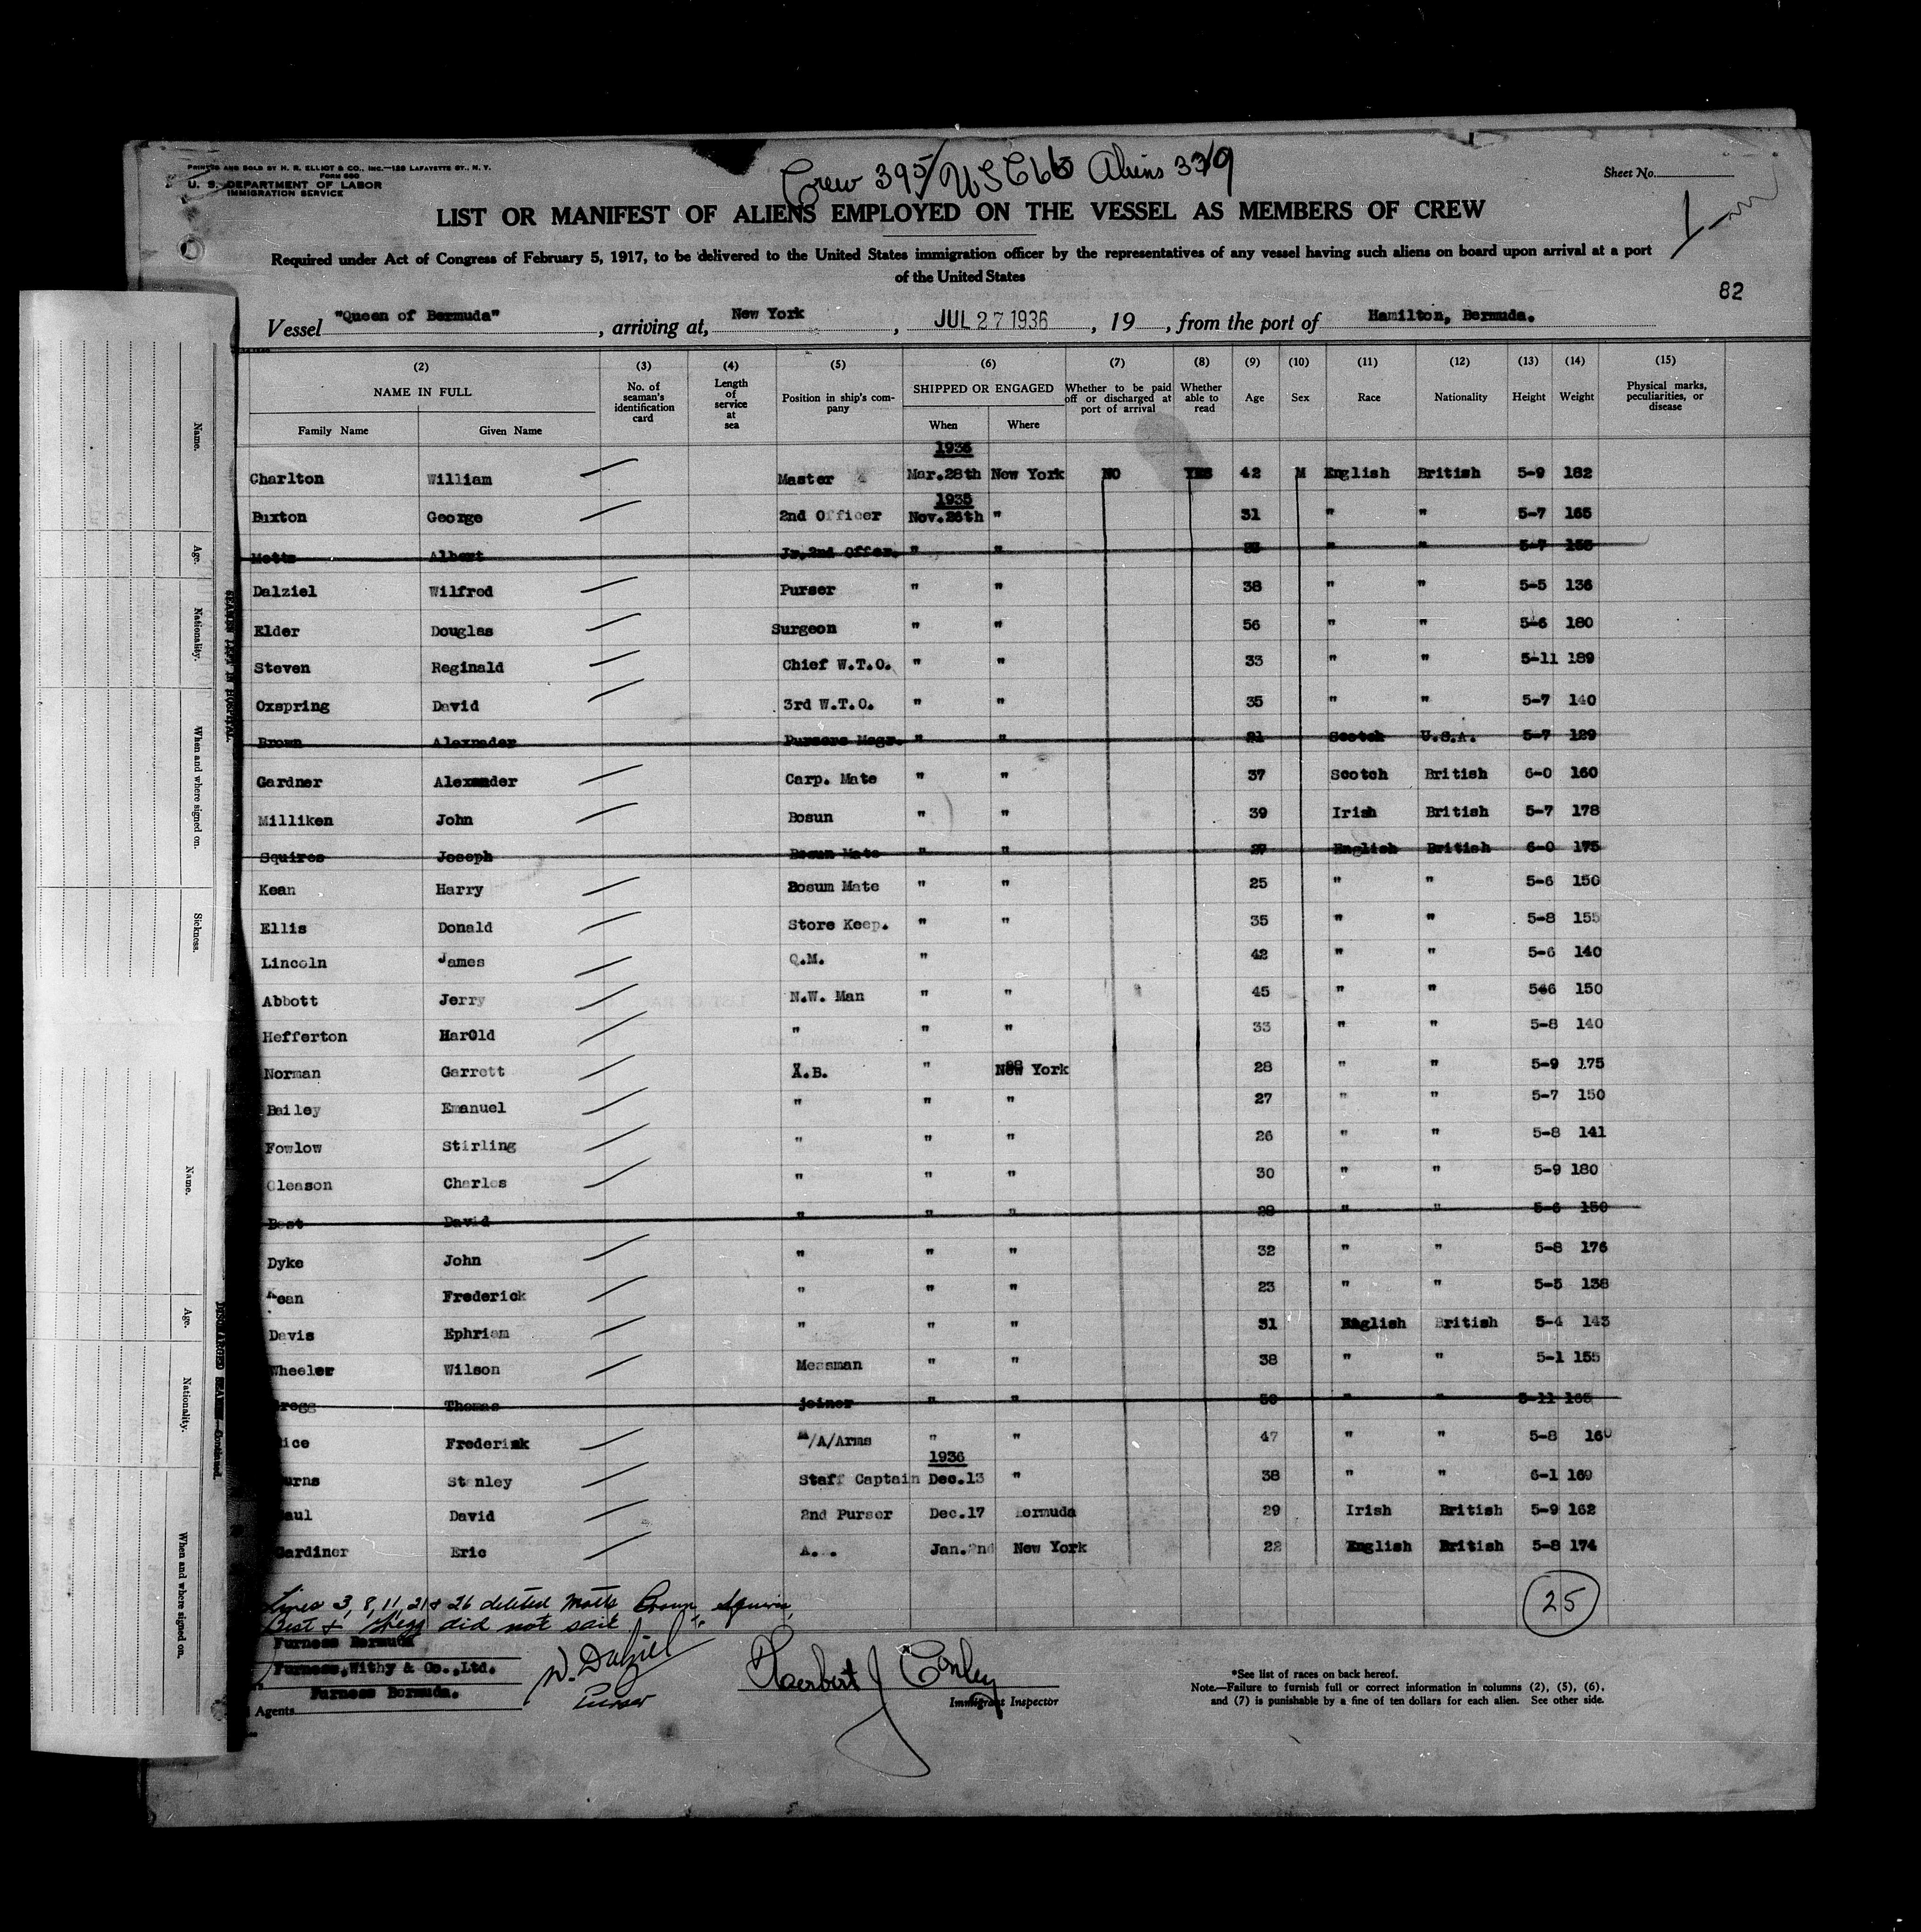 PRINTED AND SOLD BY H. R. ELLIOT & CO., INC.—128 LAFAYETTE ST., N. Y.
FORM 680
U. S. DEPARTMENT OF LABOR
IMMIGRATION SERVICE
Crew 395/ USC66 Aliens 339
Sheet No.
LIST OR MANIFEST OF ALIENS EMPLOYED ON THE VESSEL AS MEMBERS OF CREW
Required under Act of Congress of February 5, 1917, to be delivered to the United States immigration officer by the representatives of any vessel having such aliens on board upon arrival at a port
of the United States
82
Vessel "Queen of Bermuda", arriving at, New York, JUL 27 1936, 19, from the port of Hamilton, Bermuda.
(2) (3) (4) (5) (6) (7) (8) (9) (10) (11) (12) (13) (14) (15)
NAME IN FULL No. of seaman's identification card Length of service at sea Position in ship's company SHIPPED OR ENGAGED Whether to be paid off or discharged at port of arrival Whether able to read Age Sex Race Nationality Height Weight Physical marks, peculiarities, or disease
Family Name Given Name When Where
1936
Charlton William Master Mar.28th New York NO YES 42 M English British 5-9 182
1935
Buxton George 2nd Officer Nov.26th " 31 " " 5-7 165
Motts Albert Jr.2nd Offer. " " " " 5-7 155
Dalziel Wilfrod Purser " " 38 " " 5-5 136
Elder Douglas Surgeon " " 56 " " 5-6 180
Steven Reginald Chief W.T.O. " " 33 " " 5-11 189
Oxspring David 3rd W.T.O. " " 35 " " 5-7 140
Brown Alexnader Pursers Msgr. " " 21 Scotch U.S.A. 5-7 129
Gardner Alexander Carp. Mate " " 37 Scotch British 6-0 160
Milliken John Bosun " " 39 Irish British 5-7 178
Squires Joseph Bosun Mate " " 27 English British 6-0 175
Kean Harry Bosum Mate " " 25 " " 5-6 150
Ellis Donald Store Keep. " " 35 " " 5-8 155
Lincoln James Q.M. " 42 " " 5-6 140
Abbott Jerry N.W. Man " " 45 " " 546 150
Hefferton HarOld " " " 33 " " 5-8 140
Norman Garrett A.B. " New York 28 " " 5-9 175
Bailey Emanuel " " " 27 " " 5-7 150
Fowlow Stirling " " " 26 " " 5-8 141
Gleason Charles " " " 30 " " 5-9 180
Best David " " " 28 " " 5-6 150
Dyke John " " " 32 " " 5-8 176
Kean Frederick " " " 23 " " 5-5 138
Davis Ephriam " " " 31 English British 5-4 143
Wheeler Wilson Messman " " 38 " " 5-1 155
regg Thomas joiner " " 50 " " 5-11 165
ice Frederick M/A/Arms " " 47 " " 5-8 160
1936
urns Stanley Staff Captain Dec.13 " 38 " " 6-1 169
aul David 2nd Purser Dec.17 Bermuda 29 Irish British 5-9 162
Gardiner Eric A. Jan.2nd New York 22 English British 5-8 174
Lines 3, 8, 11, 21 & 26 deleted Motts Brown Squires,
Best & Gregg did not sail
25
Furness Bermuda
Furness,Withy & Co.,Ltd.
Furness Bermuda.
Agents
W. Dalziel
Purser
Herbert J Conley
Immigrant Inspector
*See list of races on back hereof.
Note.—Failure to furnish full or correct information in columns (2), (5), (6),
and (7) is punishable by a fine of ten dollars for each alien. See other side.
Name.
Age.
Nationality.
When and where signed on.
Sickness.
SEAMEN LEFT IN HOSPITAL
Name.
Age.
Nationality.
When and where signed on.
DISCHARGED SEAMEN—Continued.